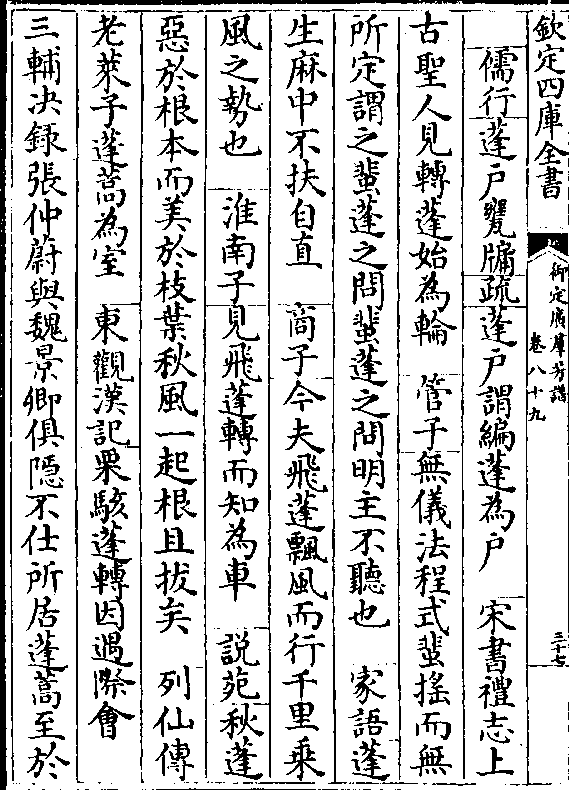 欽定四庫全書
御定廣羣芳譜
卷八十九
三十七
儒行蓬戸甕牖疏蓬戸謂編蓬為戸　宋書禮志上
古聖人見轉蓬始為輪　管子無儀法程式蜚搖而無
所定謂之蜚蓬之問蜚蓬之問明主不聽也　家語蓬
生麻中不扶自直　商子今夫飛蓬飄風而行千里乗
風之勢也　淮南子見飛蓬轉而知為車　説苑秋蓬
惡於根本而美於枝葉秋風一起根且拔矣　列仙傳
老萊子蓬蒿為室　東觀漢記栗駭蓬轉因遇際㑹
三輔決録張仲蔚與魏景卿俱隠不仕所居蓬蒿至於